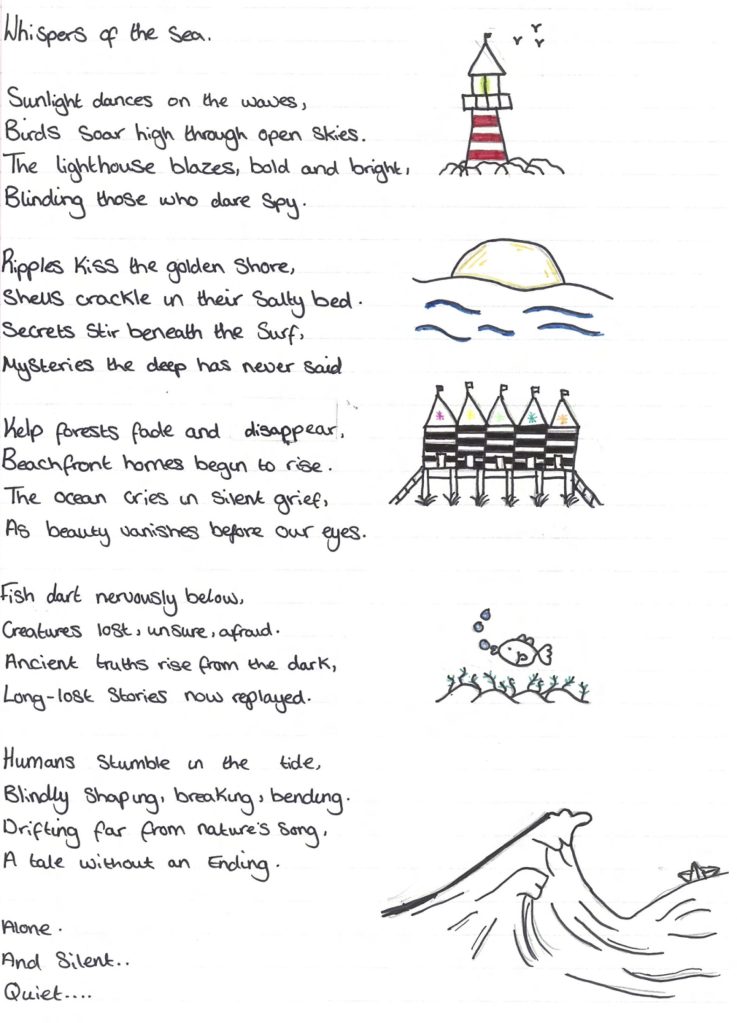 Whispers of the Sea.
Sunlight dances on the waves,
Birds soar high through open skies.
The lighthouse blazes, bold and bright,
Blinding those who dare spy.
Ripples kiss the golden shore,
Shells crackle in their salty bed.
Secrets stir beneath the surf,
Mysteries the deep has never said
Kelp forests fade and disappear,
Beachfront homes begin to rise.
The ocean cries in silent grief,
As beauty vanishes before our eyes.
Fish dart nervously below,
Creatures lost, unsure, afraid.
Ancient truths rise from the dark,
Long-lost stories now replayed.
Humans stumble in the tide,
Blindly shaping, breaking, bending.
Drifting far from nature's song,
A tale without an Ending.
Alone.
And Silent..
Quiet....